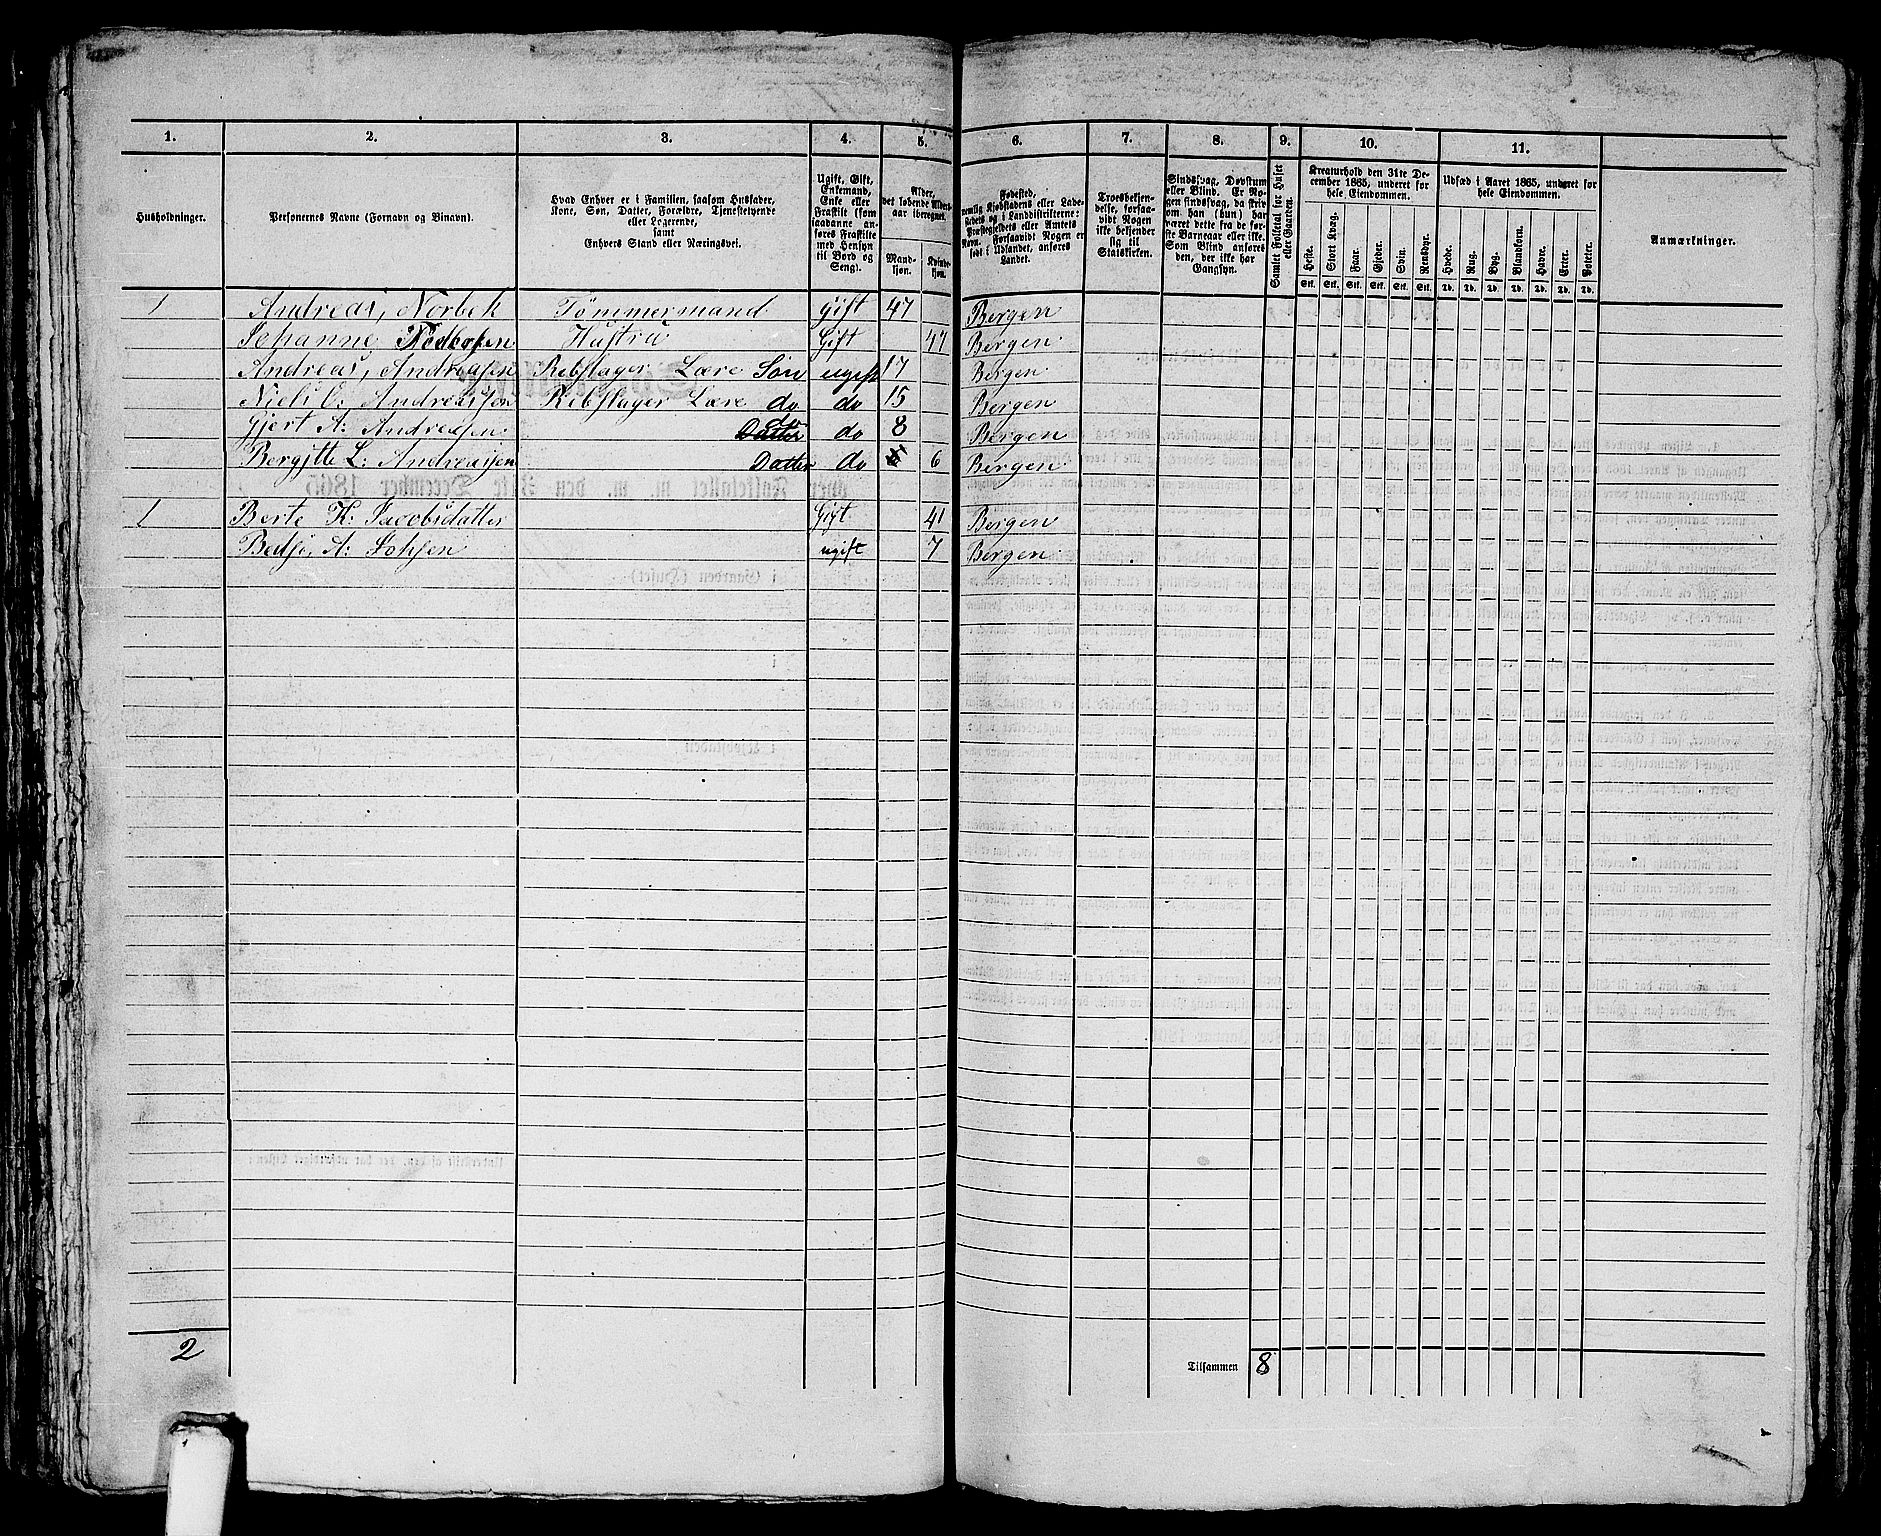 1. 2. 3. 4. 5. 6. 7. 8. 9. 10. 11.
Husholdninger.
Personernes Navne (Fornavn og Binavn).
Hvad Enhver er i Familien, saasom Husfader,
Kone, Søn, Datter, Forældre, Tjenestetyende
eller Logerende,
samt
Enhvers Stand eller Næringsvei.
Ugift, Gift,
Enkemand,
Enke eller
Fraskilt (som
saadanne an-
føres Fraskilte
med Hensyn
til Bord og
Seng).
Alder,
det løbende Alders-
aar iberegnet.
Mand-
kjøn.
Kvinde-
kjøn.
Fødested,
nemlig Kjøbstadens eller Lade-
stedets og i Landdistrikterne:
Præstegjeldets eller Amtets
Navn. Forsaavidt Nogen er
født i Udlandet, anføres
Landet.
Troesbekjen-
delse, forsaa-
vidt Nogen
ikke bekjender
sig til
Statskirken.
Sindssvag, Døvstum
eller Blind. Er No-
gen sindssvag, da skriv
om han (hun) har
været dette fra de før-
ste Barneaar eller ikke.
Som Blind anføres
den, der ikke har
Gangsyn.
Samlet Folketal for Huset
eller Gaarden.
Kreaturhold den 31te De-
cember 1865, underet for
hele Eiendommen.
Heste. Stort Kvæg. Faar. Gjeder. Svin. Rensdyr.
Stk. Stk. Stk. Stk. Stk. Stk.
Udsæd i Aaret 1865, underet for
hele Eiendommen.
Hvede. Rug. Byg. Blandkorn. Havre. Erter. Poteter.
Td. Td. Td. Td. Td. Td. Td.
Anmærkninger.
1 Andreas, Norbek Tømmermand Gift 47 Bergen
Johanne Hustru Gift 47 Bergen
Andreas, Andreasen Rebslager Lære Søn ugift 17 Bergen
Niels O: Andreassen Rebslager Lære do do 15 Bergen
Gjert A: Andreasen Datter do 8 Bergen
Bergitte L: Andreassen Datter do 6 Bergen
1 Berte K: Jacobsdatter Gift 41 Bergen
A: ugift 7 Bergen
2 Tilsammen 8